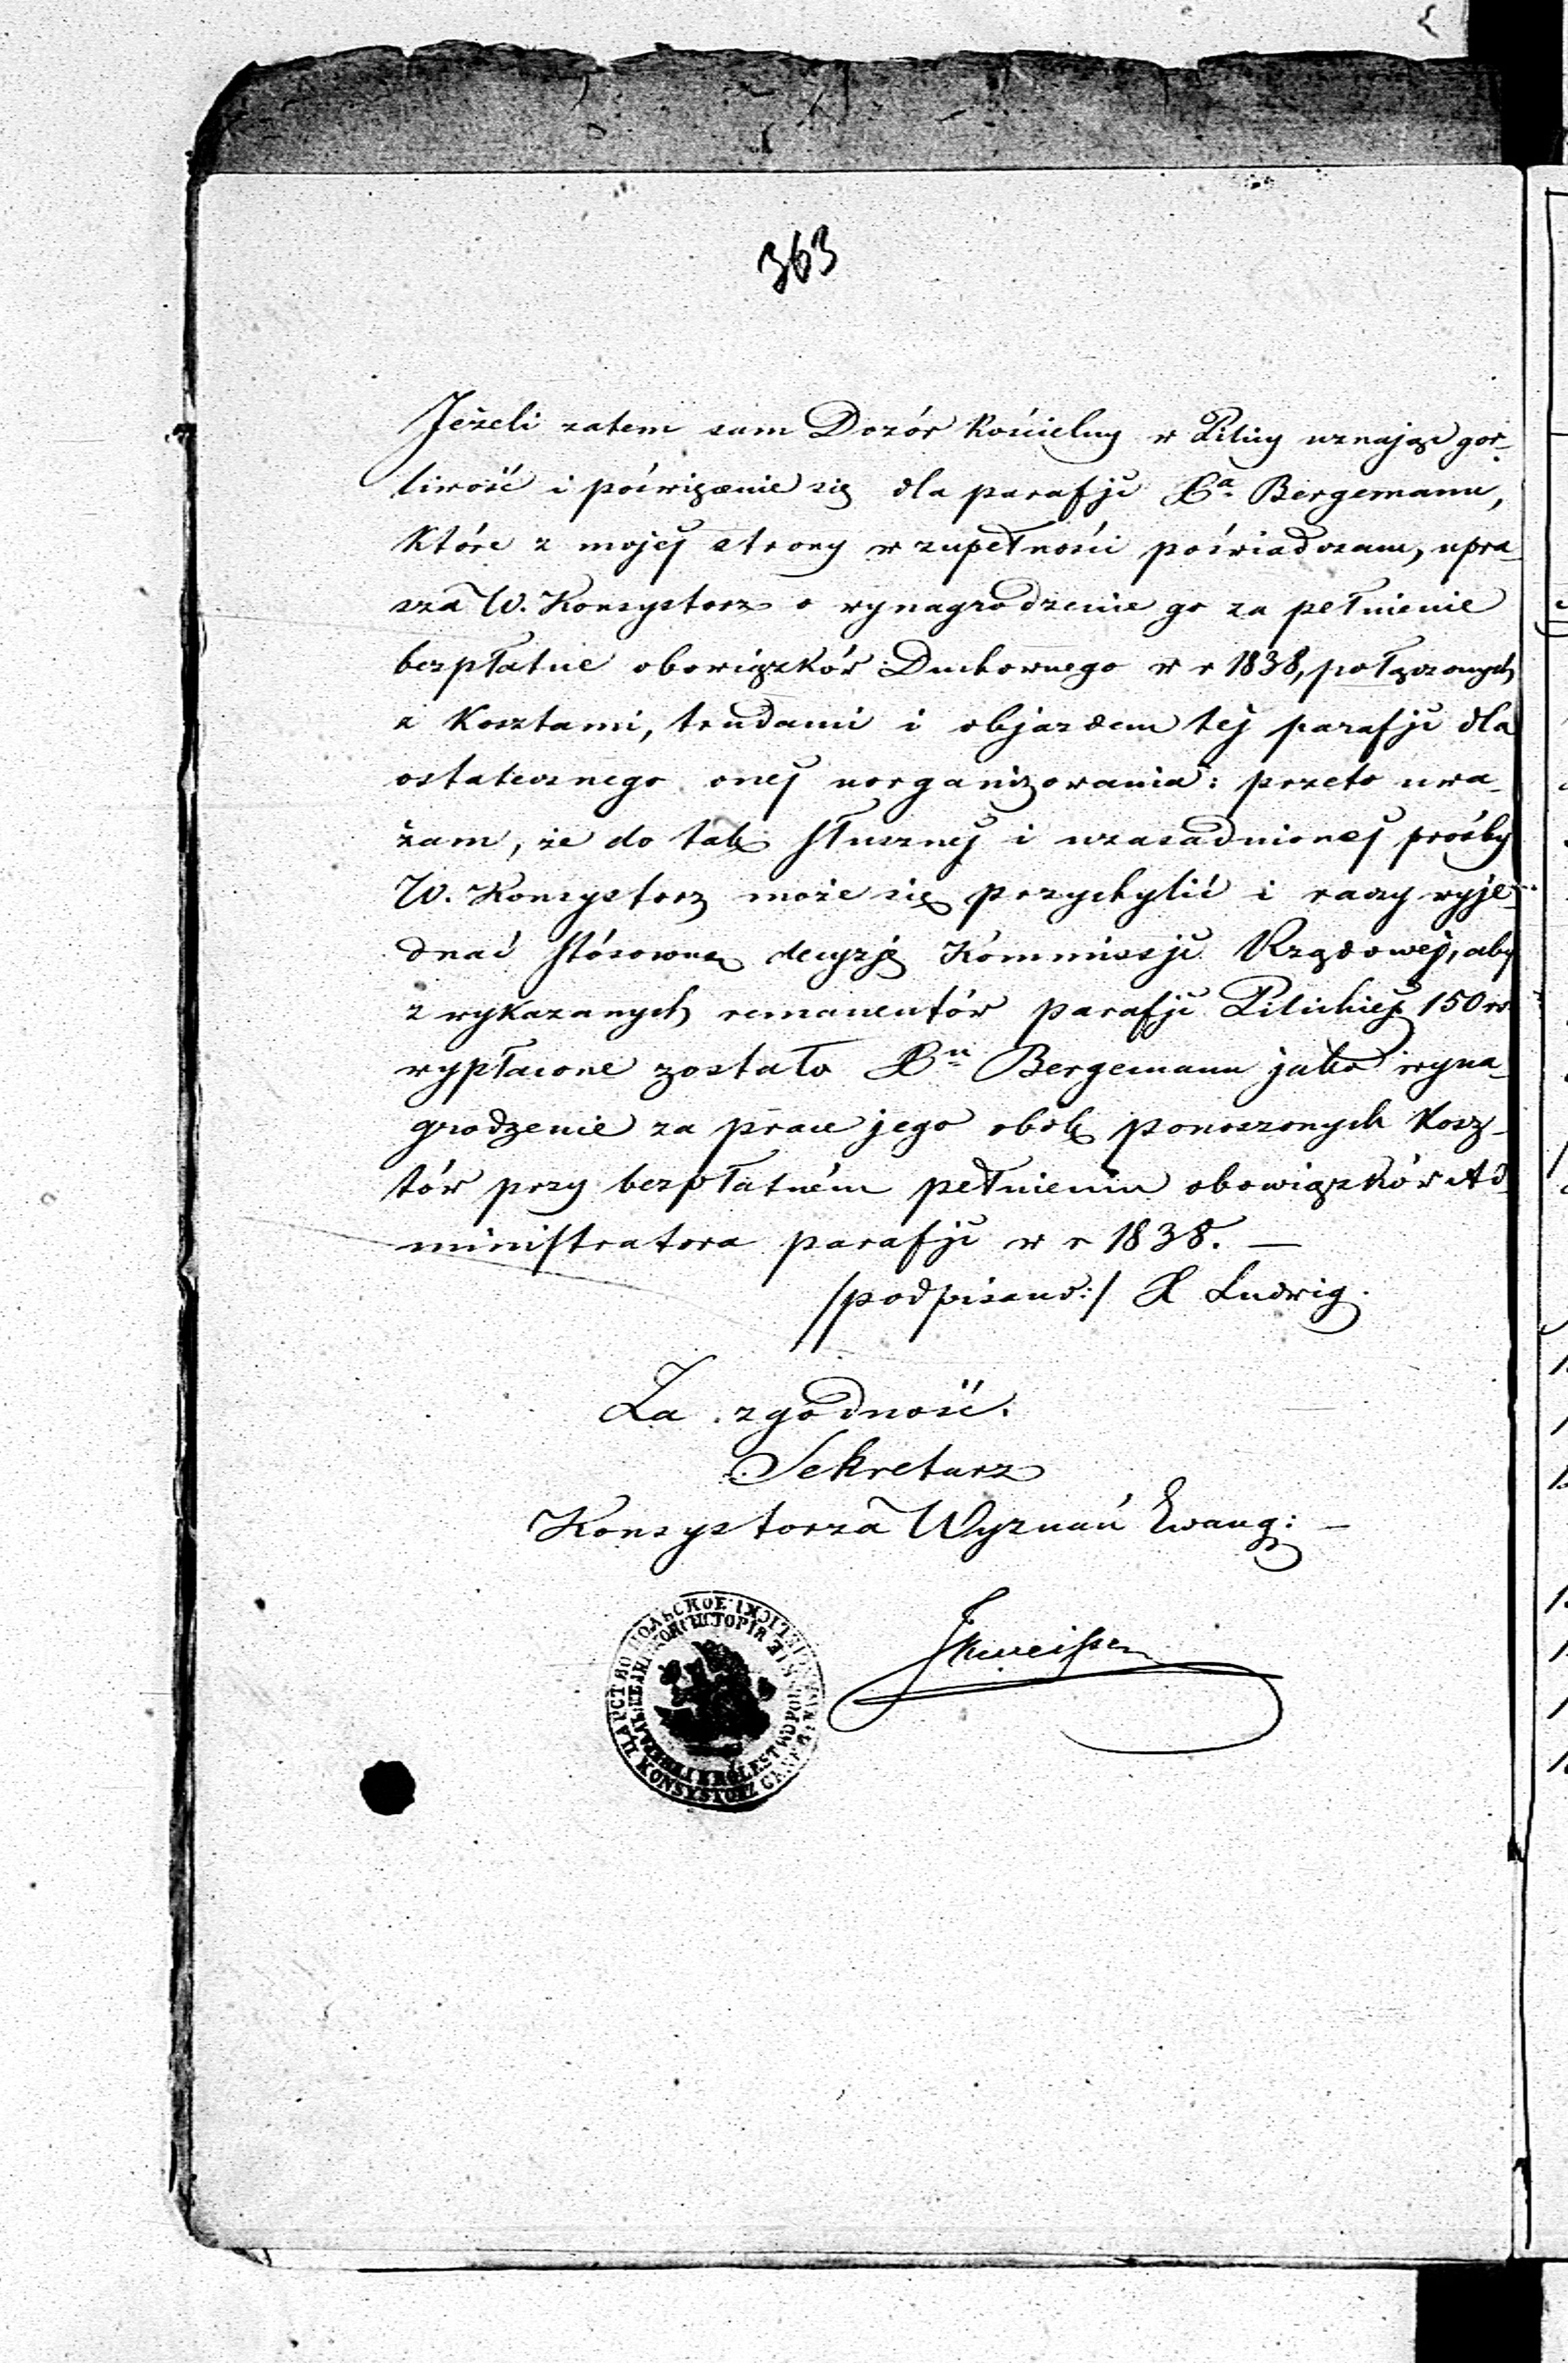 363
Jeżeli zatem sam Dozór Kościelny w Pilicy uznając gor-
liwość i poświęcenie się dla parafji Xa Bergemann,
które z mojej strony w zupełności poświadczam, upra-
sza W. Konsystorz o wynagrodzenie go za pełnienie
bezpłatne obowiązków Duchownego w r 1838, połączonych
z Kosztami, trudami i objazdem tej parafji dla
ostatecznego onej uorganizowania: przeto uwa-
żam, że do tak słusznej i uzasadnionej prośby
W. Konsystorz może się przychylić i raczy wyje-
dnać stósowną decyzję Kommissji Rządowej, aby
z wykazanych remanentów parafji Pilickiej 150
wypłacone zostało Xu Bergemann jako wyna-
grodzenie za prace jego obok ponoszonych Kosz-
tów przy bezpłatném pełnieniu obowiązków Ad-
ministratora parafji w r 1838. —
/podpisano:/ X Ludwig.
Za zgodność.
Sekretarz
Konsystorza Wyznań Ewang: —
ЦАРСТВО ПОЛЬСКОЕ
KONSYSTORZ
KRÓLESTWO POL